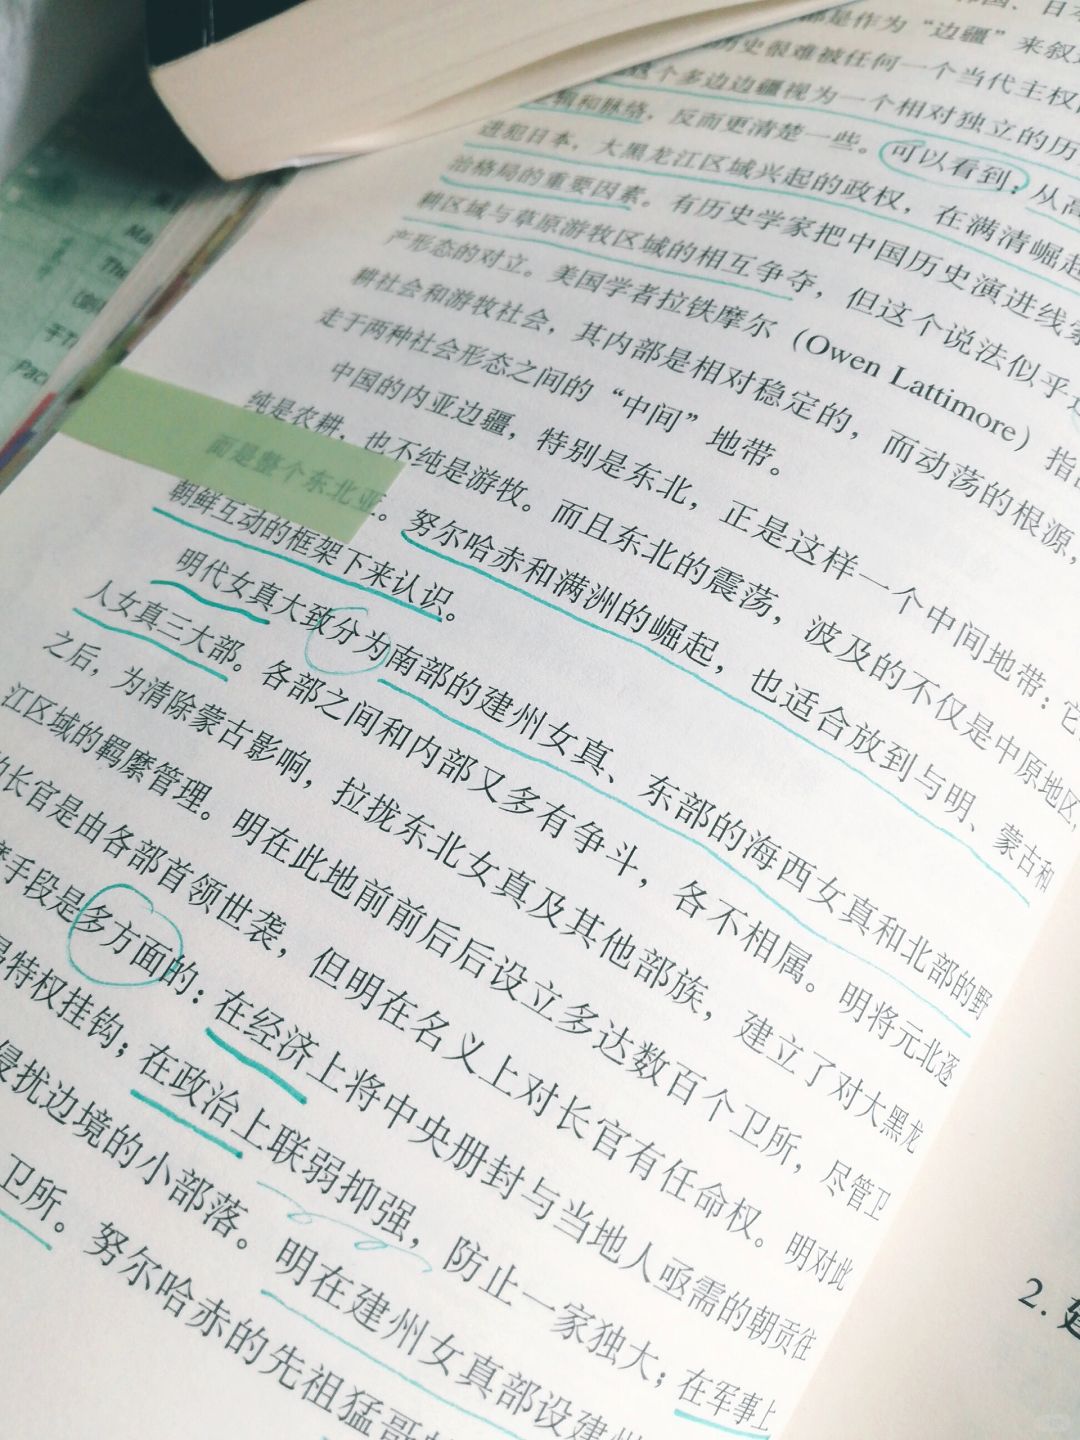 国、日本
都是作为“边疆”来叙
历史很难被任何一个当代主权
这个多边边疆视为一个相对独立的历
辑和脉络，反而更清楚一些。可以看到：从高
进犯日本，大黑龙江区域兴起的政权，在满清崛起
治格局的重要因素。有历史学家把中国历史演进线索
耕区域与草原游牧区域的相互争夺，但这个说法似乎
产形态的对立。美国学者拉铁摩尔（Owen Lattimore）指
耕社会和游牧社会，其内部是相对稳定的，而动荡的根源，
走于两种社会形态之间的“中间”地带。
中国的内亚边疆，特别是东北，正是这样一个中间地带：它
纯是农耕，也不纯是游牧。而且东北的震荡，波及的不仅是中原地区，
而是整个东北亚。努尔哈赤和满洲的崛起，也适合放到与明、蒙古和
朝鲜互动的框架下来认识。
明代女真大致分为南部的建州女真、东部的海西女真和北部的野
人女真三大部。各部之间和内部又多有争斗，各不相属。明将元北逐
之后，为清除蒙古影响，拉拢东北女真及其他部族，建立了对大黑龙
江区域的羁縻管理。明在此地前前后后设立多达数百个卫所，尽管卫
的长官是由各部首领世袭，但明在名义上对长官有任命权。明对此
手段是多方面的：在经济上将中央册封与当地人亟需的朝贡往
易特权挂钩；在政治上联弱抑强，防止一家独大；在军事上
侵扰边境的小部落。明在建州女真部设建州
卫所。努尔哈赤的先祖猛哥
2. 建
Ma
The
Pac